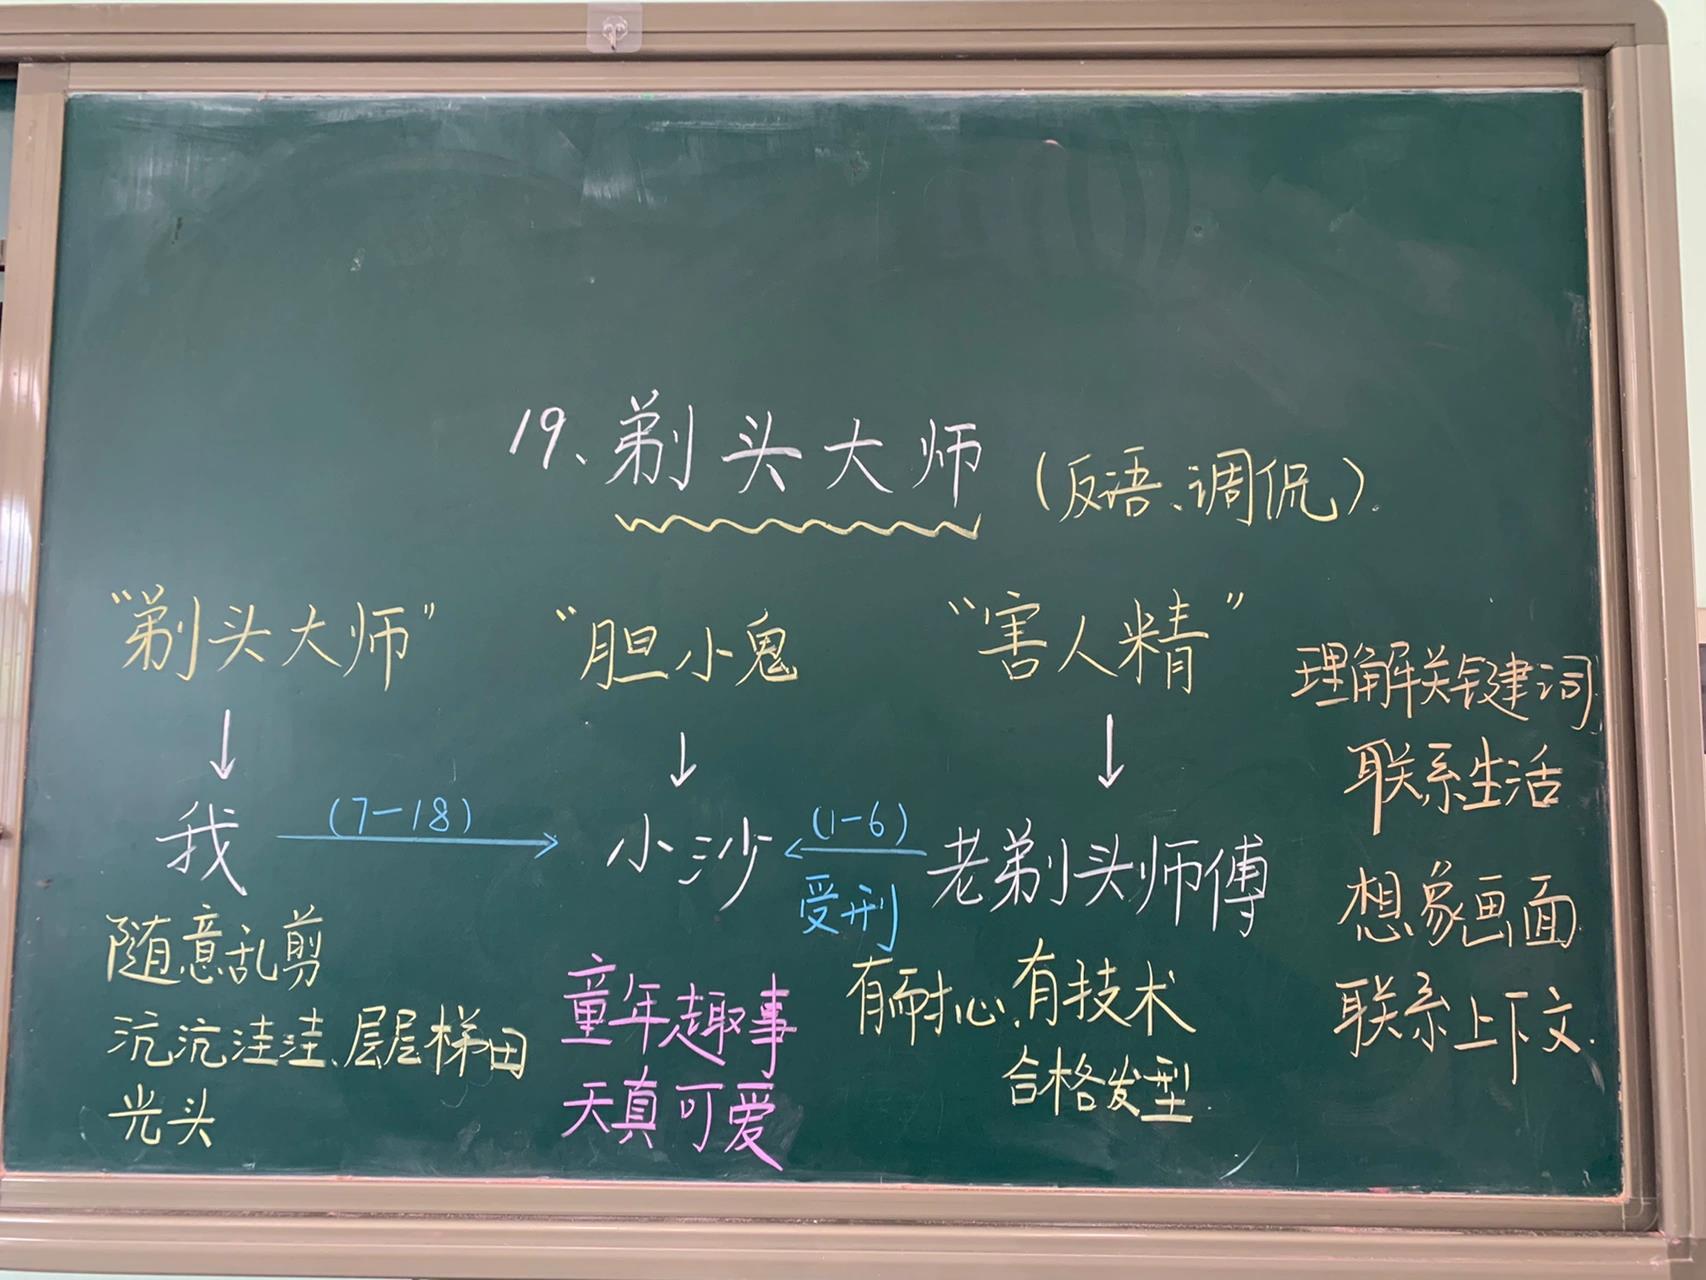 19、剃头大师 (反语、调侃).
“剃头大师” “胆小鬼 “害人精”
我 (7-18) 小沙 (1-6) 老剃头师傅
受刑
随意乱剪
坑坑洼洼、层层梯田
光头
童年趣事
天真可爱
有耐心、有技术
合格发型.
理解关键词
联系生活
想象画面
联系上下文.